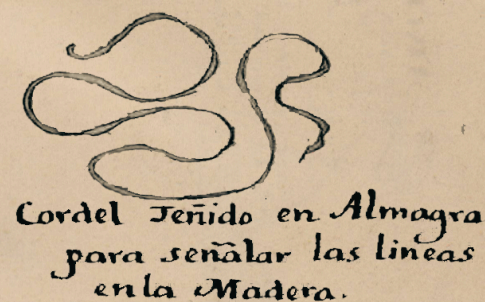 Cordel Teñido en Almagra
para señalar las lineas
en la Madera.